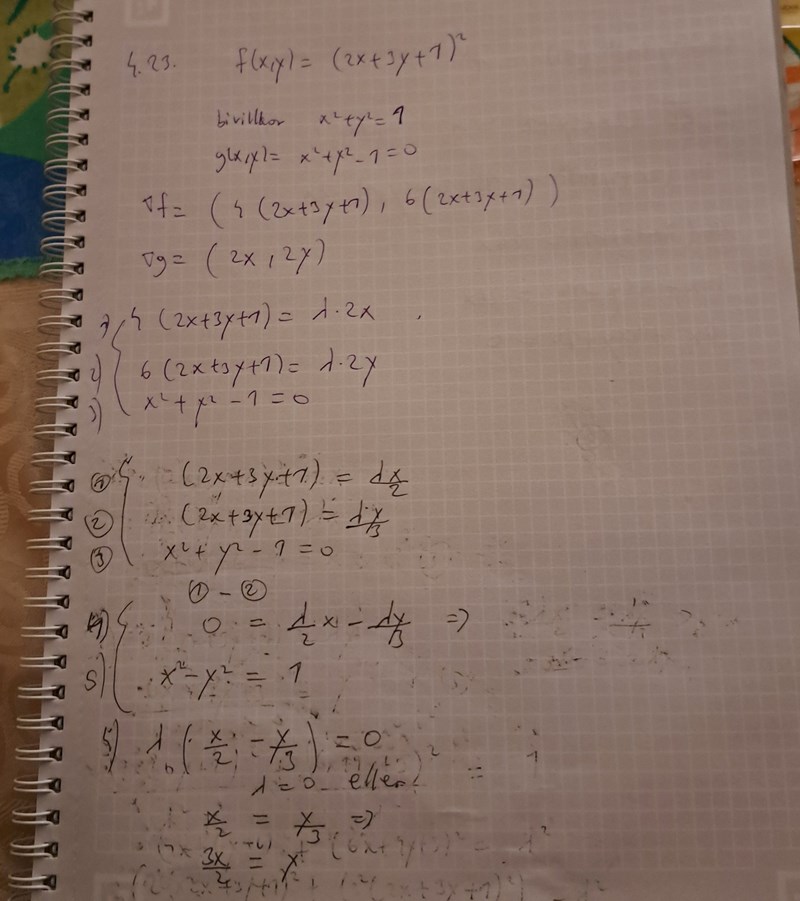 4.23. f(x,y) = (2x+3y+1)²
bivillkor x²+y²=1
g(x,y)= x²+y²-1=0
∇f= (4(2x+3y+1), 6(2x+3y+1))
∇g= (2x, 2y)
1) 4(2x+3y+1)= λ·2x
2) 6(2x+3y+1)= λ·2y
3) x²+y²-1=0
① (2x+3y+1) = λx/2
② (2x+3y+1) = λy/3
③ x²+y²-1=0
①-②
4) 0 = λ/2 x - λy/3 =>
5) x²-y² = 1
5) λ(x/2 - y/3) = 0
λ=0 eller
x/2 = y/3 =>
3x/2 = y